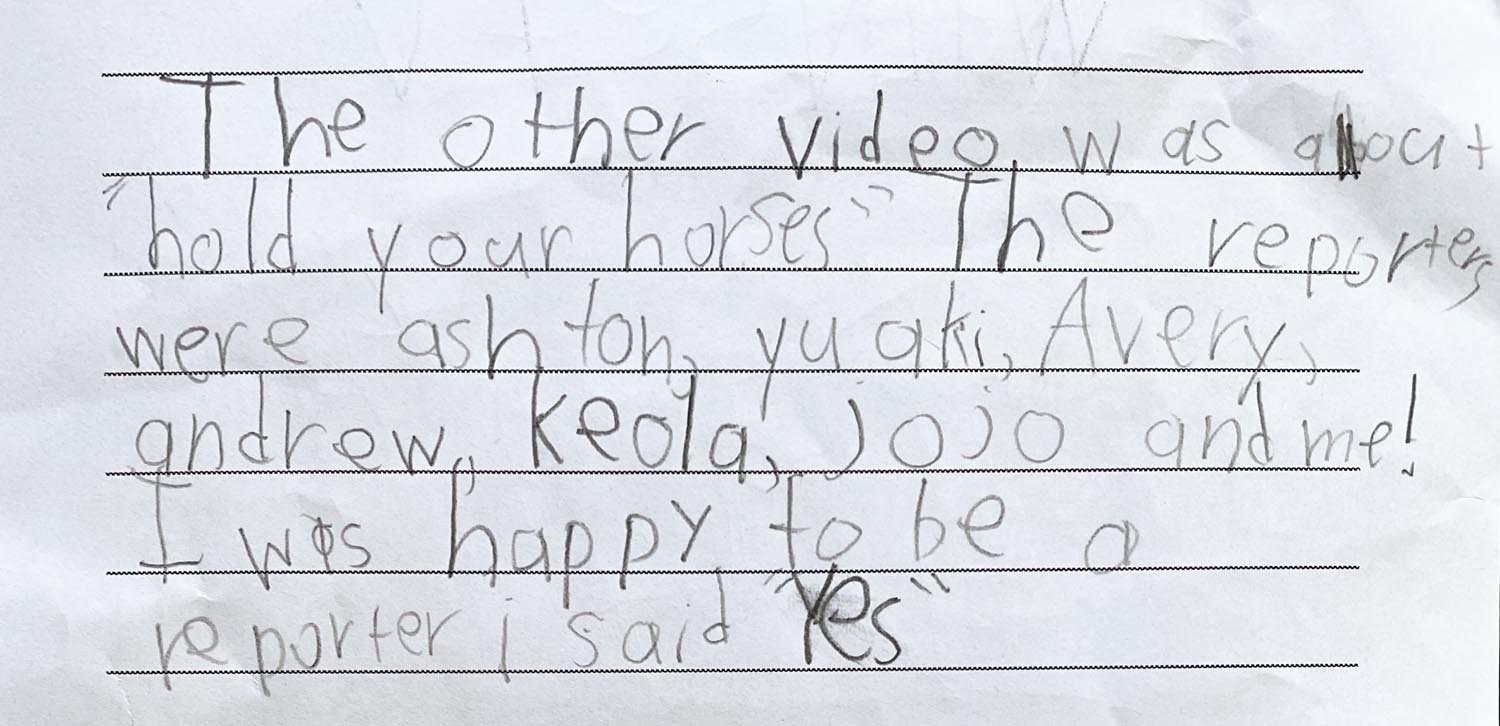 The other video was about
"hold your horses" The reporters
were ashton, yuaki, Avery,
andrew, keola, jojo and me!
I was happy to be a
reporter i said "Yes"